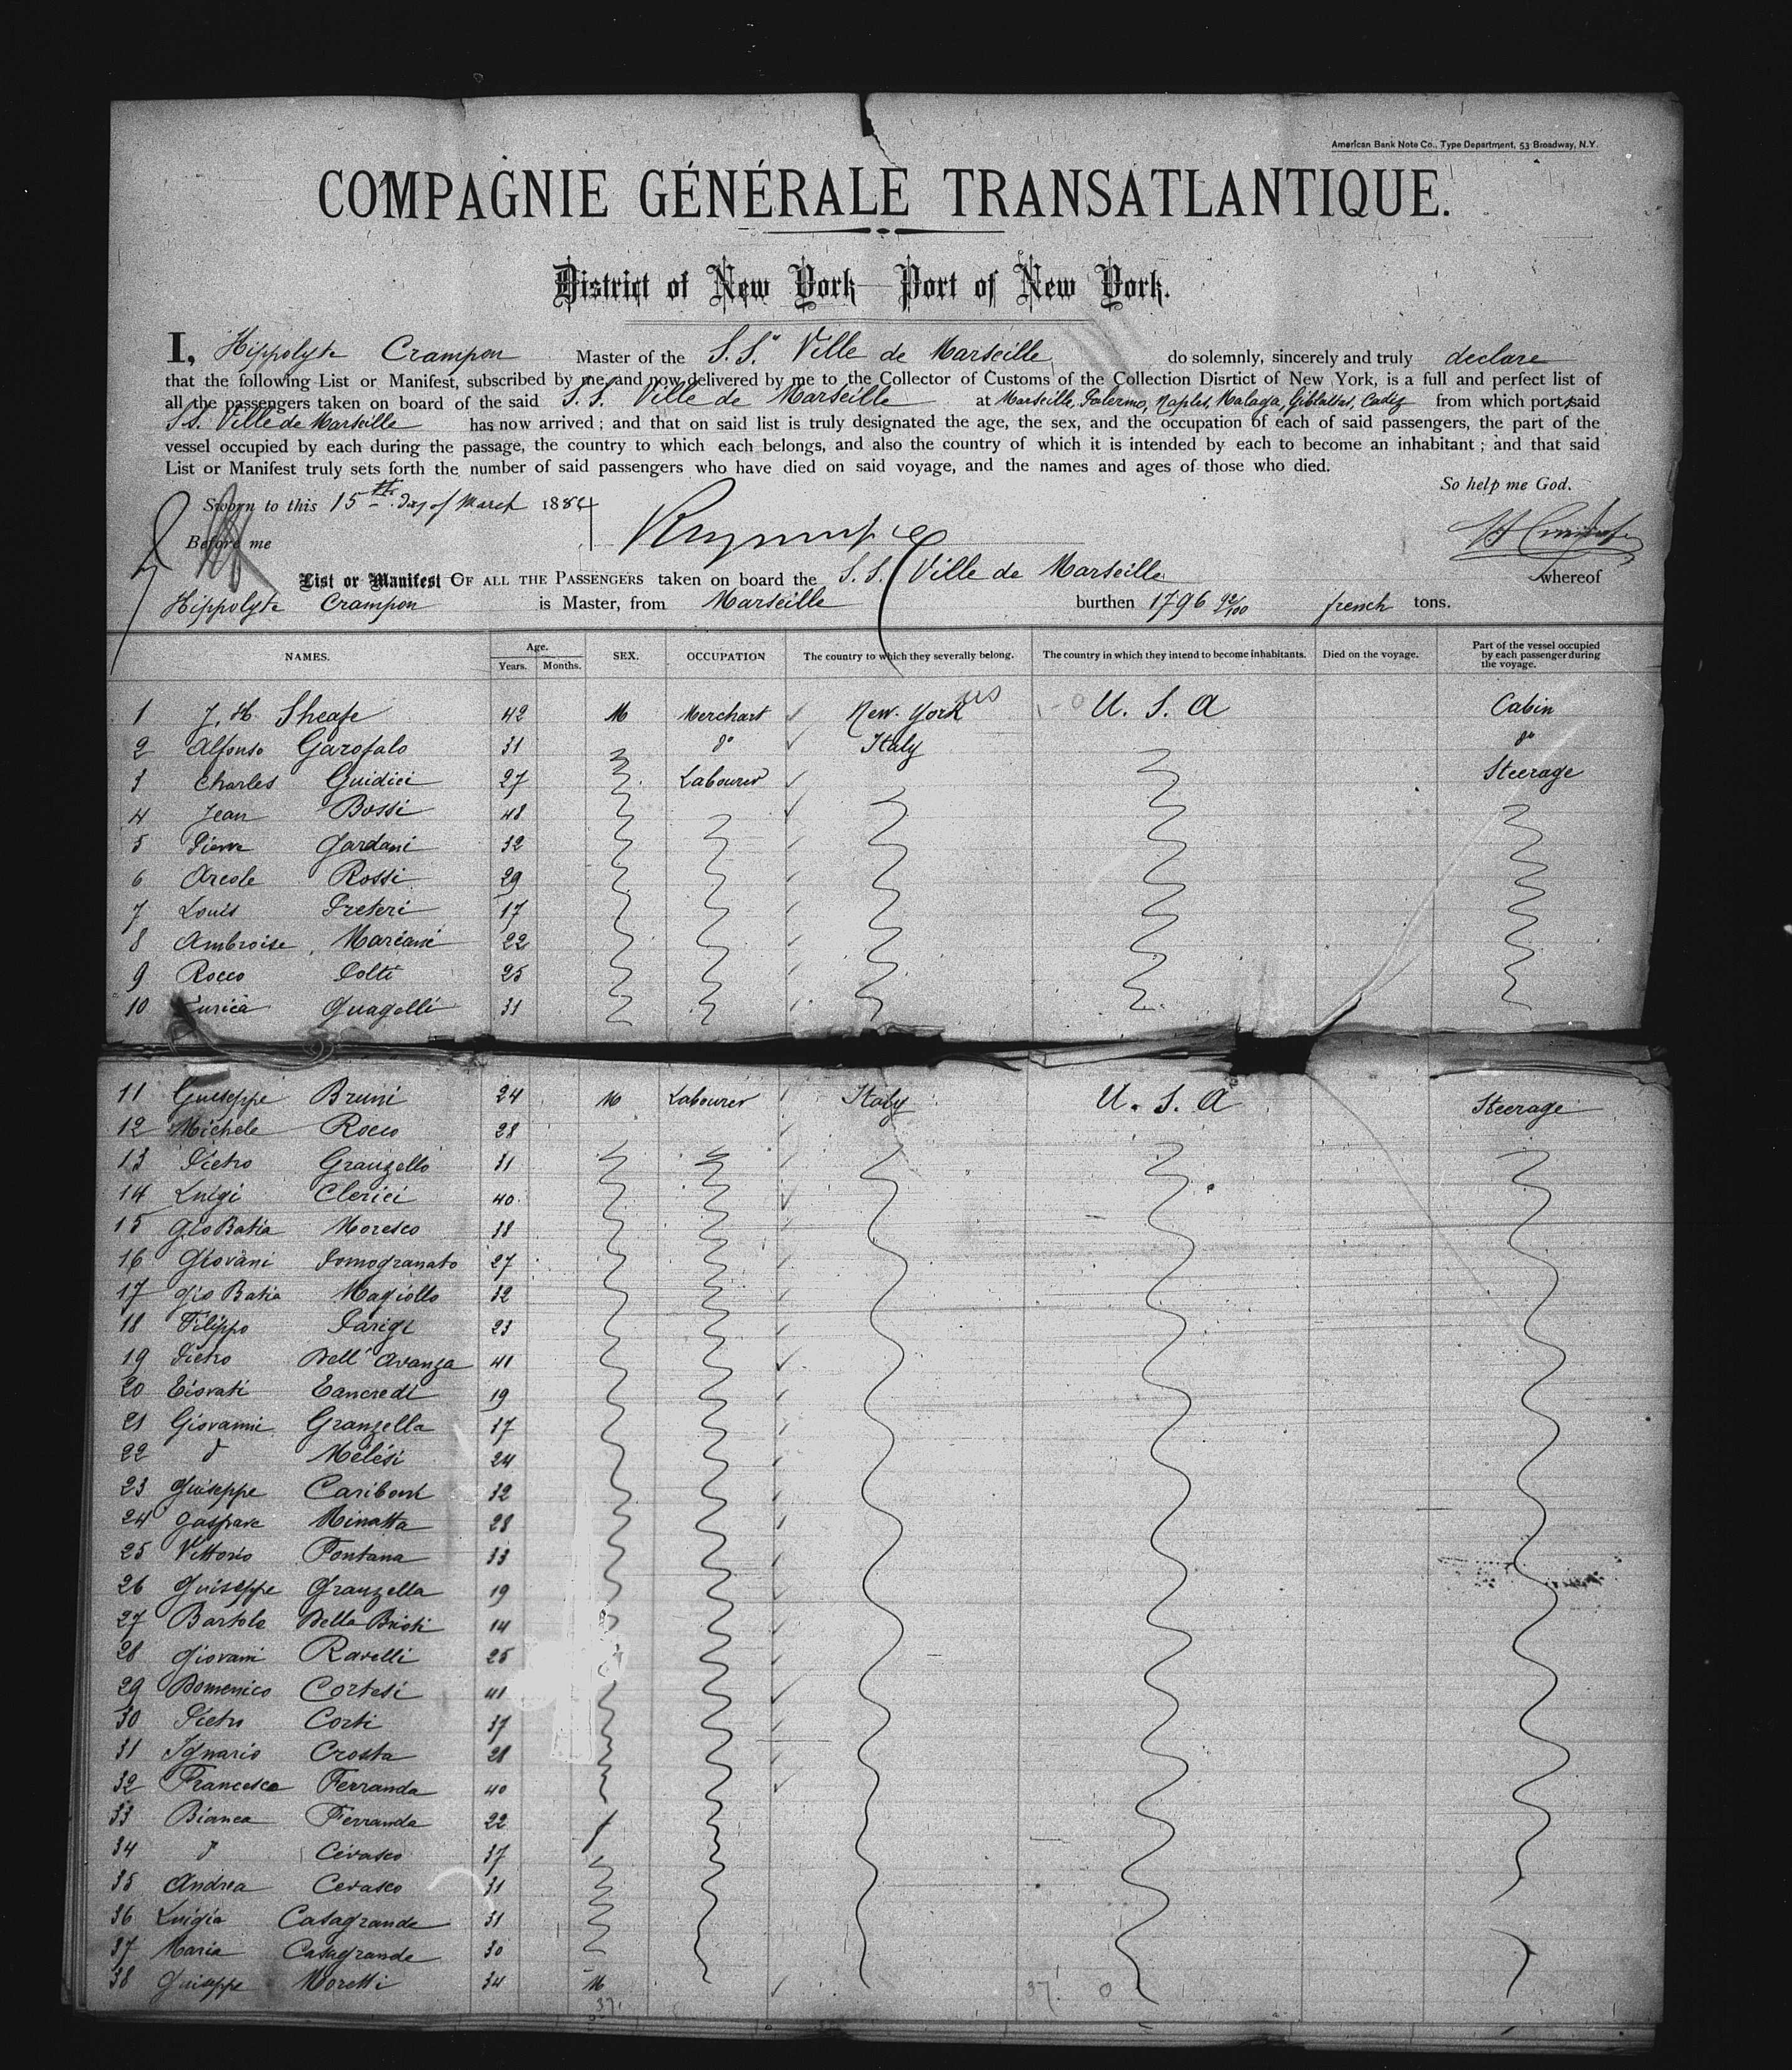 American Bank Note Co., Type Department, 53 Broadway, N.Y.
COMPAGNIE GÉNÉRALE TRANSATLANTIQUE.
District of New York—Port of New York.
I, Hippolyte Crampon Master of the S.S. Ville de Marseille do solemnly, sincerely and truly declare
that the following List or Manifest, subscribed by me, and now delivered by me to the Collector of Customs of the Collection Disrtict of New York, is a full and perfect list of
all the passengers taken on board of the said S.S. Ville de Marseille at Marseille, Palermo, Naples, Malaga, Gibraltar, Cadiz from which port said
S.S. Ville de Marseille has now arrived; and that on said list is truly designated the age, the sex, and the occupation of each of said passengers, the part of the
vessel occupied by each during the passage, the country to which each belongs, and also the country of which it is intended by each to become an inhabitant; and that said
List or Manifest truly sets forth the number of said passengers who have died on said voyage, and the names and ages of those who died.
So help me God.
Sworn to this 15th day of March 1884
Before me
List or Manifest OF ALL THE PASSENGERS taken on board the S.S. Ville de Marseille whereof
Hippolyte Crampon is Master, from Marseille burthen 1796 92/100 french tons.
NAMES. Age. Years. Months. SEX. OCCUPATION The country to which they severally belong. The country in which they intend to become inhabitants. Died on the voyage. Part of the vessel occupied by each passenger during the voyage.
1 J. H. Sheafe 42 M Merchant New York US U.S.A Cabin
2 Alfonso Garofalo 31 do Italy do
3 Charles Guidici 27 Labourer Steerage
4 Jean Bossi 48
5 Pierre Gardani 32
6 Arcole Rossi 29
7 Louis Preteri 17
8 Ambroise Mariani 22
9 Rocco Polti 25
10 Quagelli 31
11 Guiseppe Bruni 24 M Labourer Italy U.S.A Steerage
12 Michele Rocco 28
13 Pietro Granzello 31
14 Luigi Clerici 40
15 Gio Batia Moresco 38
16 Giovani Pomogranato 27
17 Gio Batia Magiollo 32
18 Filippo Parigi 23
19 Pietro Dell'Avanza 41
20 Tiovati Tancredi 19
21 Giovanni Granzella 37
22 d Mélési 24
23 Guiseppe Cariboni 32
24 Gaspare Minatta 28
25 Vittorio Fontana 33
26 Guiseppe Granzella 19
27 Bartolo Della 14
28 Giovani Ravelli 25
29 Domenico Cortesi 41
30 Pietro Corti 37
31 Ignazio Crosta 28
32 Francesco Ferranda 40
33 Bianca Ferranda 22
34 d Cevasco 37
35 Andrea Cevasco 31
36 Luigia Casagrande 31
37 Maria Casagrande 30
38 Guiseppe Moretti 34 M
37. 37. 0